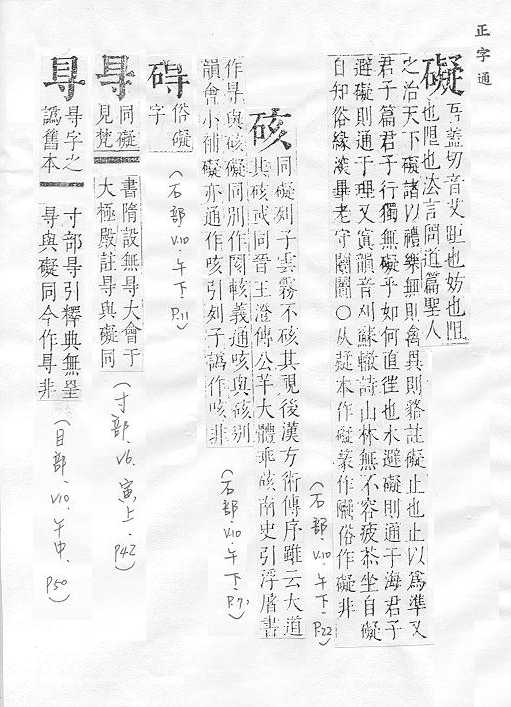 正字通
礙
吾蓋切音艾距也妨也阻
也阻也法言問道篇聖人
之治天下礙諸以禮樂無則禽異則貉註礙止也止以爲準又
君子篇君子行獨無礙乎如何直徃也水避礙則通于海君子
避礙則通于理又寘韻音刈蘇轍詩山林無不容疲苶坐自礙
自知俗緣濃畢老守闤闠○从疑本作礙篆作俗作礙非
(石部.V10.午下.P.22)
硋
同礙列子雲霧不硋其視後漢方術傳序雖云大道
其硋或同晉王澄傳公羊大體乖硋南史引浮屠書
作㝵與硋礙同別作閡輆義通咳與硋別
韻會小補礙亦通作咳引列子譌作咳非
(石部.V10.午下.P.7.)
碍
俗礙
字
(石部.V10.午下.P.11)
㝵
同礙
見梵
書隋設無㝵大會于
大極殿註㝵與礙同
(寸部.V6.寅上.P42)
㝵
㝵字之
譌舊本
寸部㝵引釋典無罣
㝵與礙同今作㝵非
(目部.V10.午中.P50)